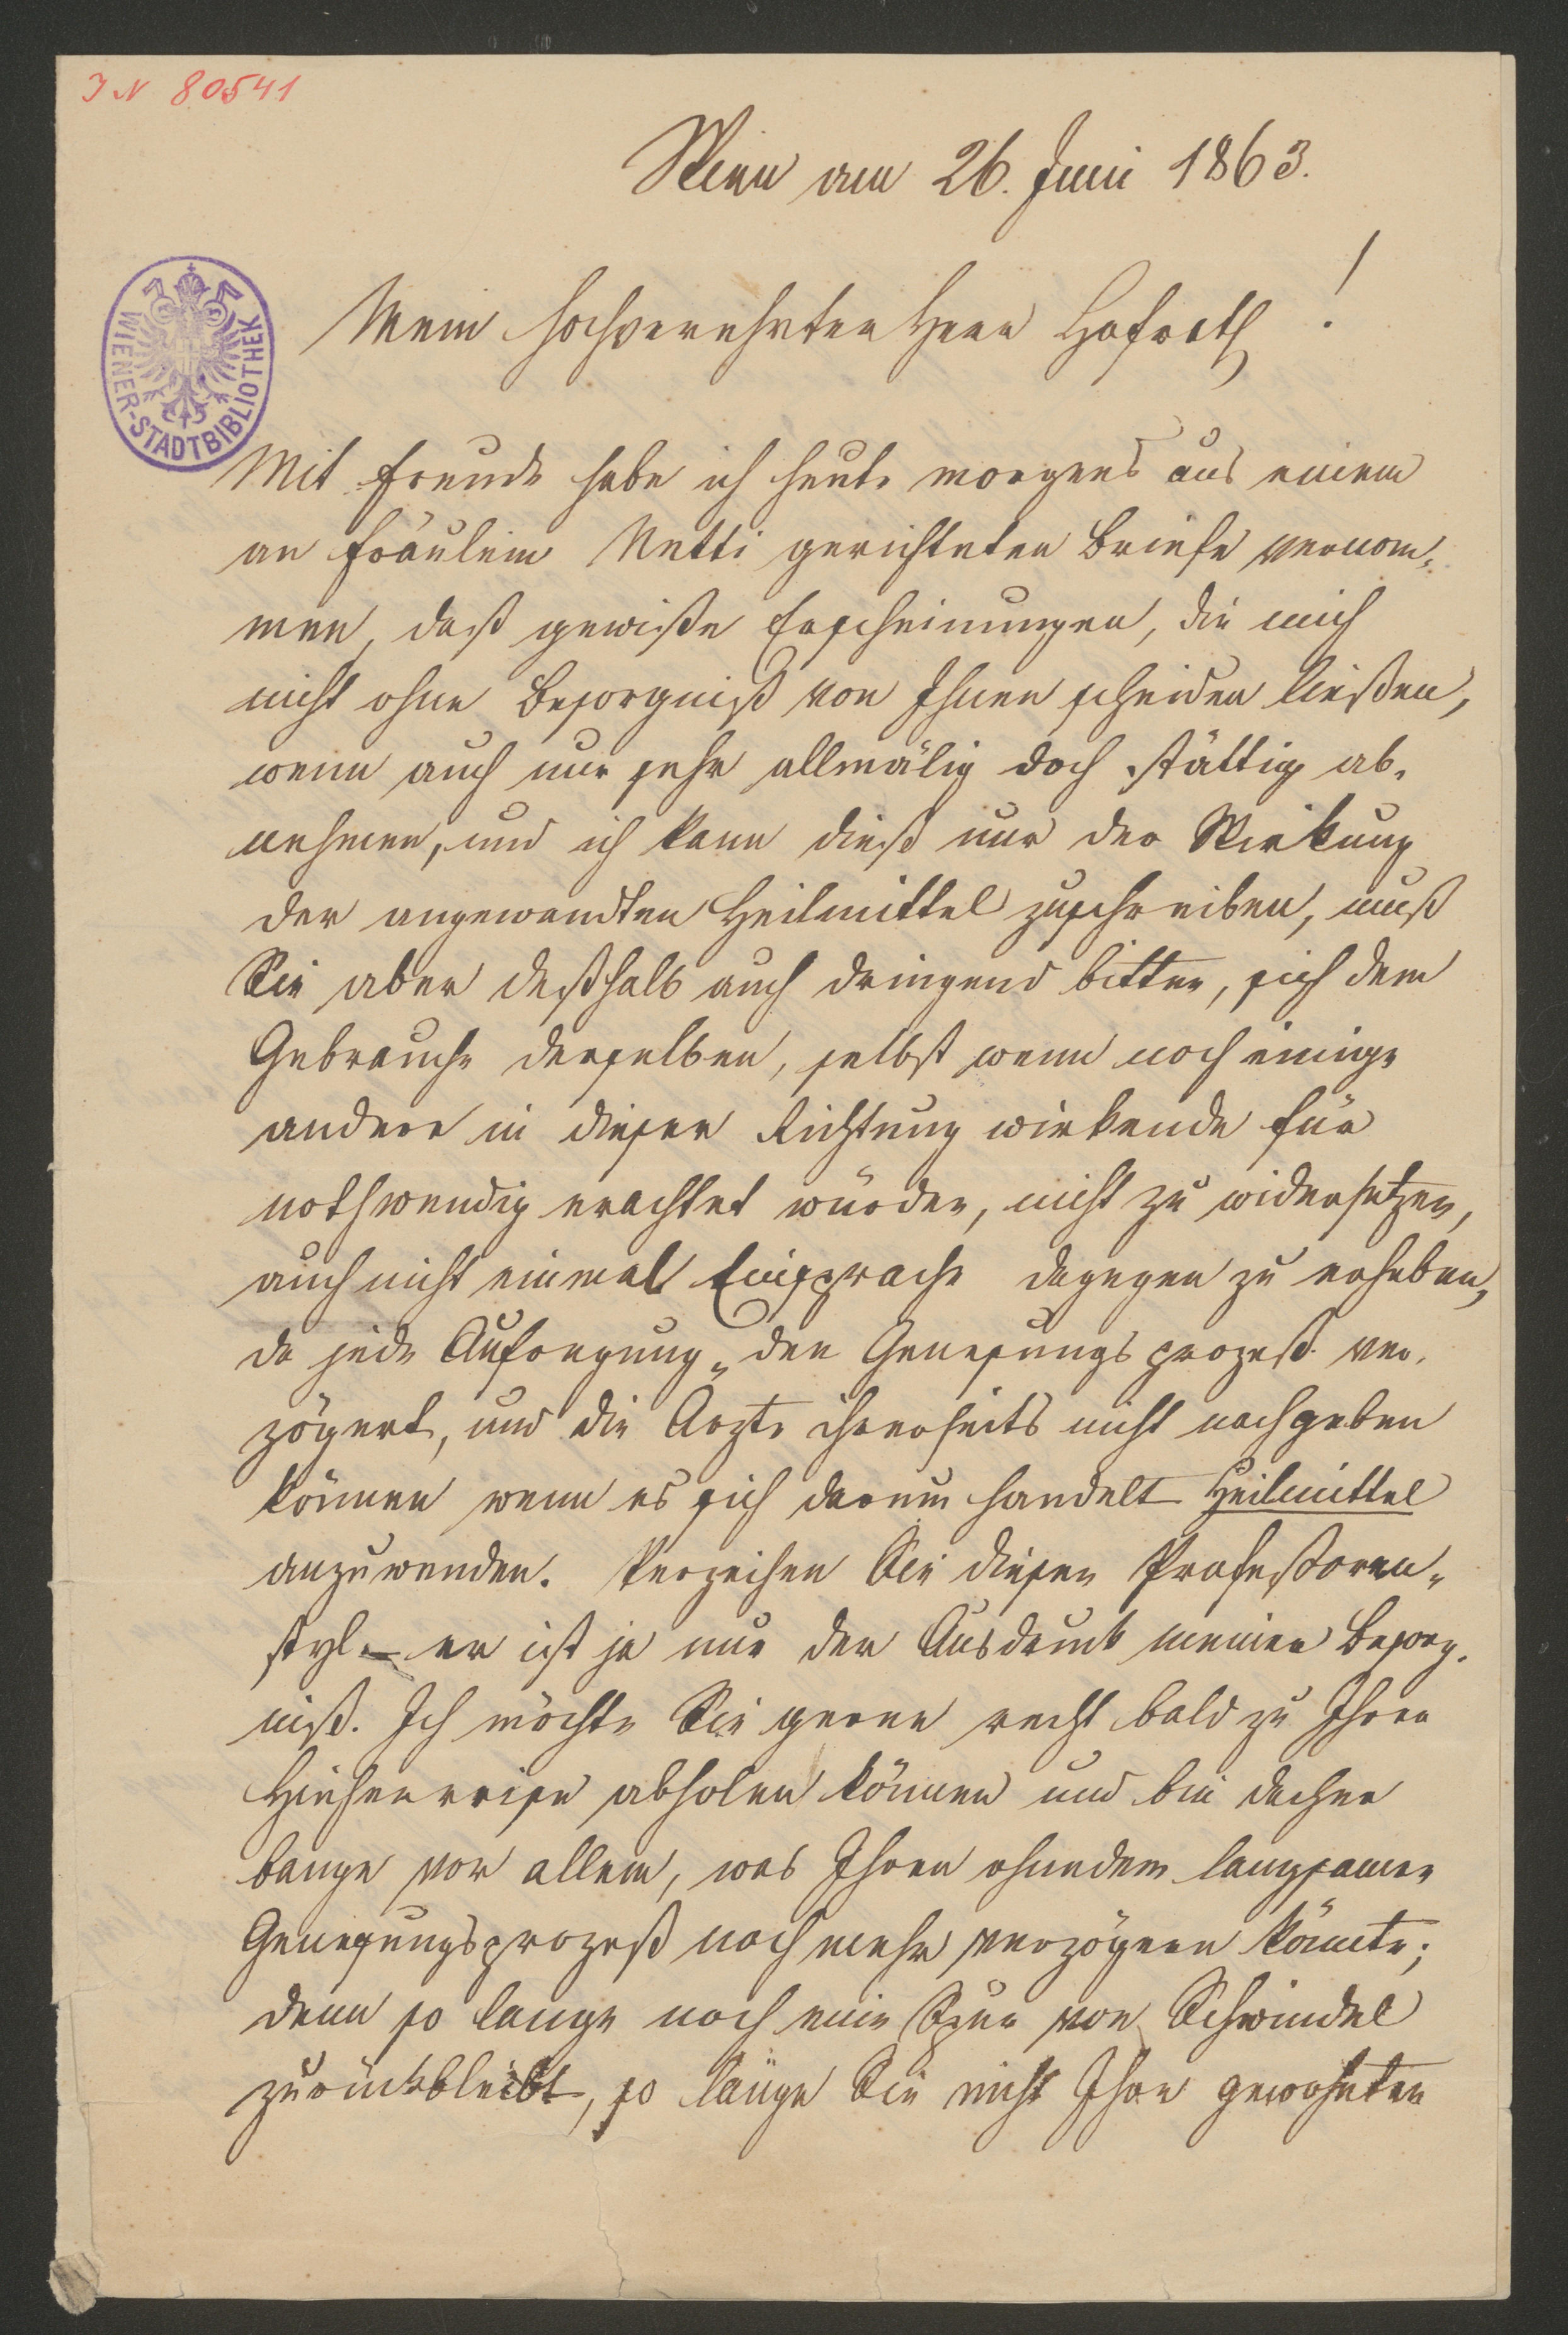 JN 80541
Wien am 26. Juni 1863.
WIENER-STADTBIBLIOTHEK
Mein hochverehrter Herr Hofrath!
Mit Freude habe ich heute morgens aus einem
an Fräulein Netti gerichteten Briefe vernom-
men, daß gewiße Erscheinungen, die mich
nicht ohne Besorgniß von Ihnen scheiden ließen,
wenn auch nur sehr allmälig doch stättig ab-
nehmen, und ich kann dieß nur der Wirkung
der angewandten Heilmittel zuschreiben, muß
Sie aber deßhalb auch dringend bitten, sich dem
Gebrauche derselben, selbst wenn noch einige
andere in dieser Richtung wirkende für
nothwendig erachtet würden, nicht zu widersetzen,
auch nicht einmal Einsprache dagegen zu erheben,
da jede Aufregung den Genesungsprozeß ver-
zögert, und die Ärzte ihrerseits nicht nachgeben
können wenn es sich darum handelt Heilmittel
anzuwenden. Verzeihen Sie diesen Profeßoren-
styl – er ist ja nur der Ausdruck meiner Besorg-
niß. Ich möchte Sie gerne recht bald zu Ihrer
Hieherreise abholen können und bin daher
bange vor allem, was Ihren ohnedem langsamen
Genesungsprozeß noch mehr verzögern könnte;
denn so lange noch eine Spur von Schwindel
zurückbleibt, so lange Sie nicht Ihre gewohnten